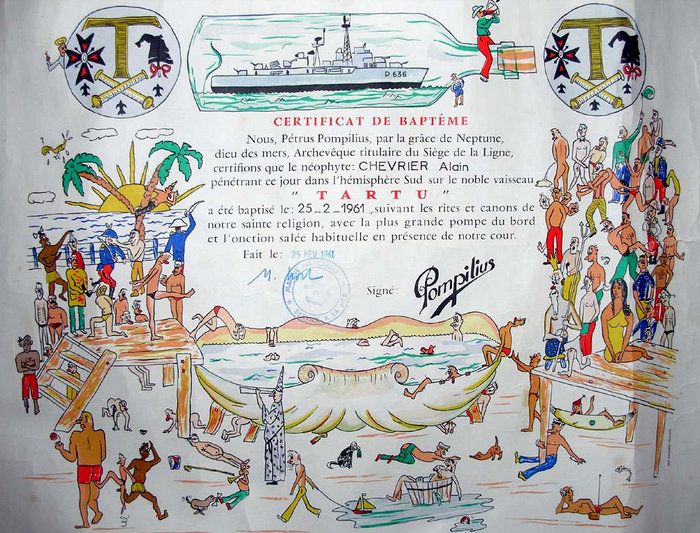 D 636
CERTIFICAT DE BAPTÊME
Nous, Pétrus Pompilius, par la grâce de Neptune,
dieu des mers, Archevêque titulaire du Siège de la Ligne,
certifions que le néophyte: CHEVRIER Alain
pénétrant ce jour dans l'hémisphère Sud sur le noble vaisseau
" TARTU "
a été baptisé le: 25_2_1961, suivant les rites et canons de
notre sainte religion, avec la plus grande pompe du bord
et l'onction salée habituelle en présence de notre cour.
Fait le: 25 FEV. 1961
Signé: Pompilius